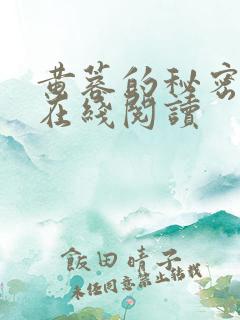 黄蓉的秘密
在线閱讀
飯田晴子
未经同意禁止转载